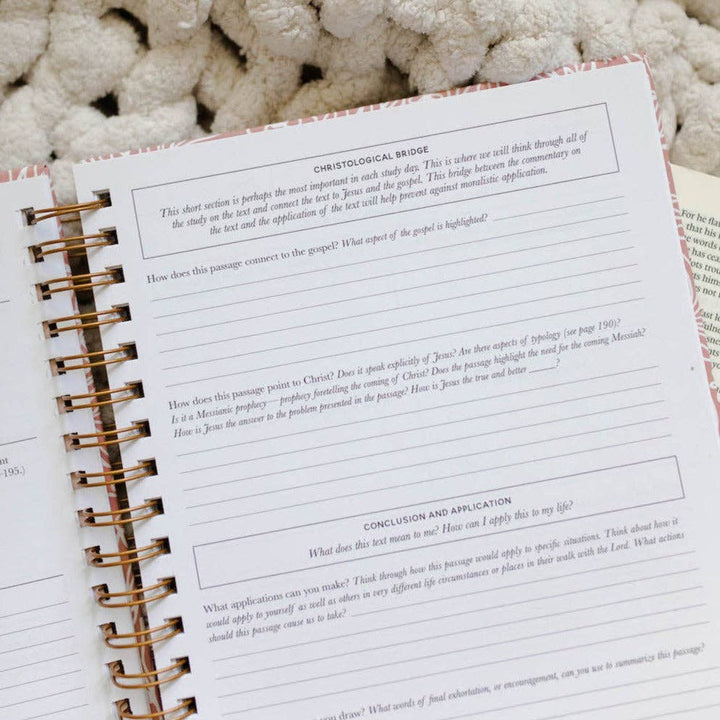 nt
-195.)
CHRISTOLOGICAL BRIDGE
This short section is perhaps the most important in each study day. This is where we will think through all of
the study on the text and connect the text to Jesus and the gospel. This bridge between the commentary on
the text and the application of the text will help prevent against moralistic application.
How does this passage connect to the gospel? What aspect of the gospel is highlighted?
How does this passage point to Christ? Does it speak explicitly of Jesus? Are there aspects of typology (see page 190)?
Is it a Messianic prophecy—prophecy foretelling the coming of Christ? Does the passage highlight the need for the coming Messiah?
How is Jesus the answer to the problem presented in the passage? How is Jesus the true and better _____?
CONCLUSION AND APPLICATION
What does this text mean to me? How can I apply this to my life?
What applications can you make? Think through how this passage would apply to specific situations. Think about how it
would apply to yourself as well as others in very different life circumstances or places in their walk with the Lord. What actions
should this passage cause us to take?
you draw? What words of final exhortation, or encouragement, can you use to summarize this passage?
For he fla
that his
words
has cea